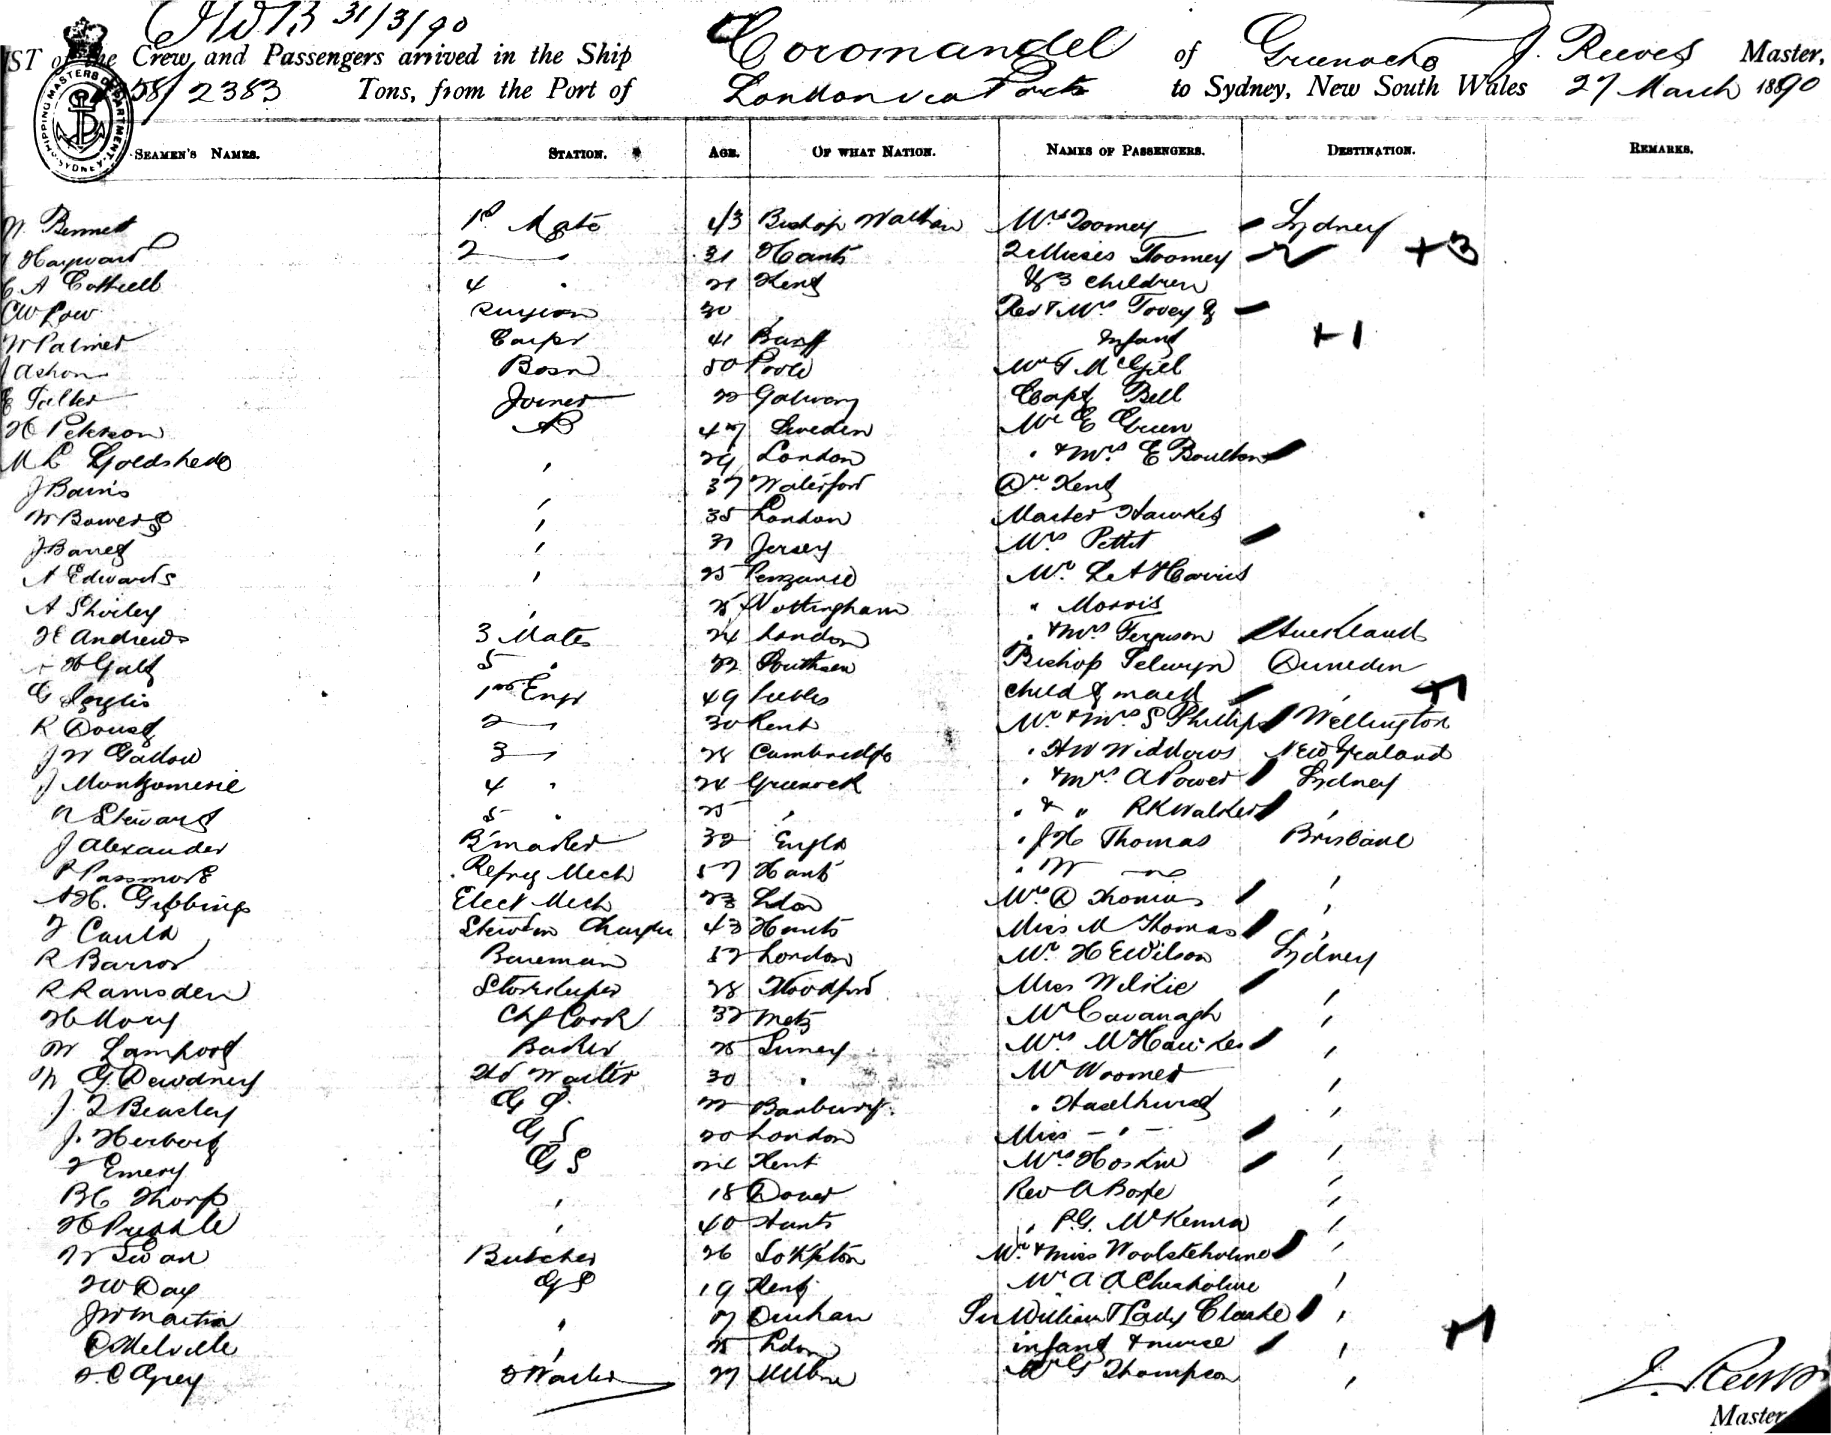 31/3/90
of the Crew and Passengers arrived in the Ship Coromandel of Greenock J. Reeves Master,
2383 Tons, from the Port of London via Ports to Sydney, New South Wales 27 March 1890
SHIPPING MASTERS DEPARTMENT SYDNEY
SEAMEN'S NAMES. STATION. AGE. OF WHAT NATION. NAMES OF PASSENGERS. DESTINATION. REMARKS.
W Bennett 1st Mate 43 Bishop Waltham Mrs Toomey Sydney
Hayward 2 " 31 Hants 2 Misses Toomey +3
C A Cottrell 4 " 21 Kent & 3 children
CW Low Surgeon 30 " Rev & Mrs Tovey &
W Palmer Carpr 41 Banff Infant +1
J Ashon Bosn 50 Poole Mr T McGill
E Joiner 22 Galway Capt Bell
H Peterson AB 47 Sweden Mr E Green
M L Goldshede " 29 London " & Mrs E Boulton
J Bains " 37 Waterford Dr Kent
W Bowers " 35 London Master Hawkes
J Barnes " 31 Jersey Mrs Pettit
A Edwards " 25 Penzance Mr L A Harris
A Shirley " 25 Nottingham " Morris
H Andrews 3 Mates 24 London " & Mrs Ferguson Auckland
H Galt 5 " 22 Southsea Bishop Selwyn Dunedin
G Inglis 1st Engr 49 child & maid " +1
R Doust 2 " 30 Kent Mr & Mrs S Phillips Wellington
J W Gallow 3 " 28 Cambridge " H W Widdows New Zealand
J Montgomerie 4 " 24 Greenock " & Mrs A Power Sydney
Stewart 5 " 25 " " & " R K Walker "
J Alexander B'maker 32 Engld " J H Thomas Brisbane
P Passmore Refrig Mech 57 Hants " W "
A H. Gibbings Elect Mech 23 Ldon Mrs D Thomas "
T Cauld Stewd in Charge 43 Hants Miss M Thomas "
R Barrow Barman 52 London Mr H E Wilson Sydney
R Ramsden Storekeeper 28 Woodford Miss Wilkie "
H Mory Chf Cook 32 Metz Mr Cavanagh "
W Lamport Baker 25 Surrey Mrs M Hawkes "
W G Dewdney Hd Waiter 30 " Mr Woomer "
J T Beasley G S 22 Banbury " Haselhurst "
J. Herbert G S 20 London Miss - " - "
T Emery G S 24 Kent Mrs Hoskin "
B C Thorp " 18 Dover Rev A Boxe "
H " 40 Hants " P. G. McKenna "
W Swan Butcher 26 Mr & Miss Woolsteholme "
T W Day G S 19 Kent Mr A A Chisholme "
J W Martin " Durham Sir William & Lady Clarke "
C Melville " 25 Ldon infant & nurse " +1
T. C Grey Waiter 27 Melbne Mr G Thompson "
J. Reeves
Master